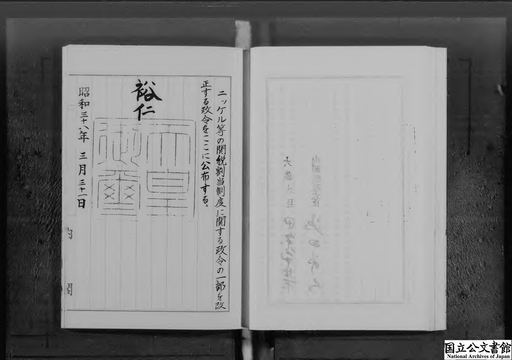 ニッケル等の関税割当制度に関する政令の一部を改
正する政令をここに公布する。
裕仁
天皇
御璽
昭和三十八年三月三十一日
内閣
国立公文書館
National Archives of Japan